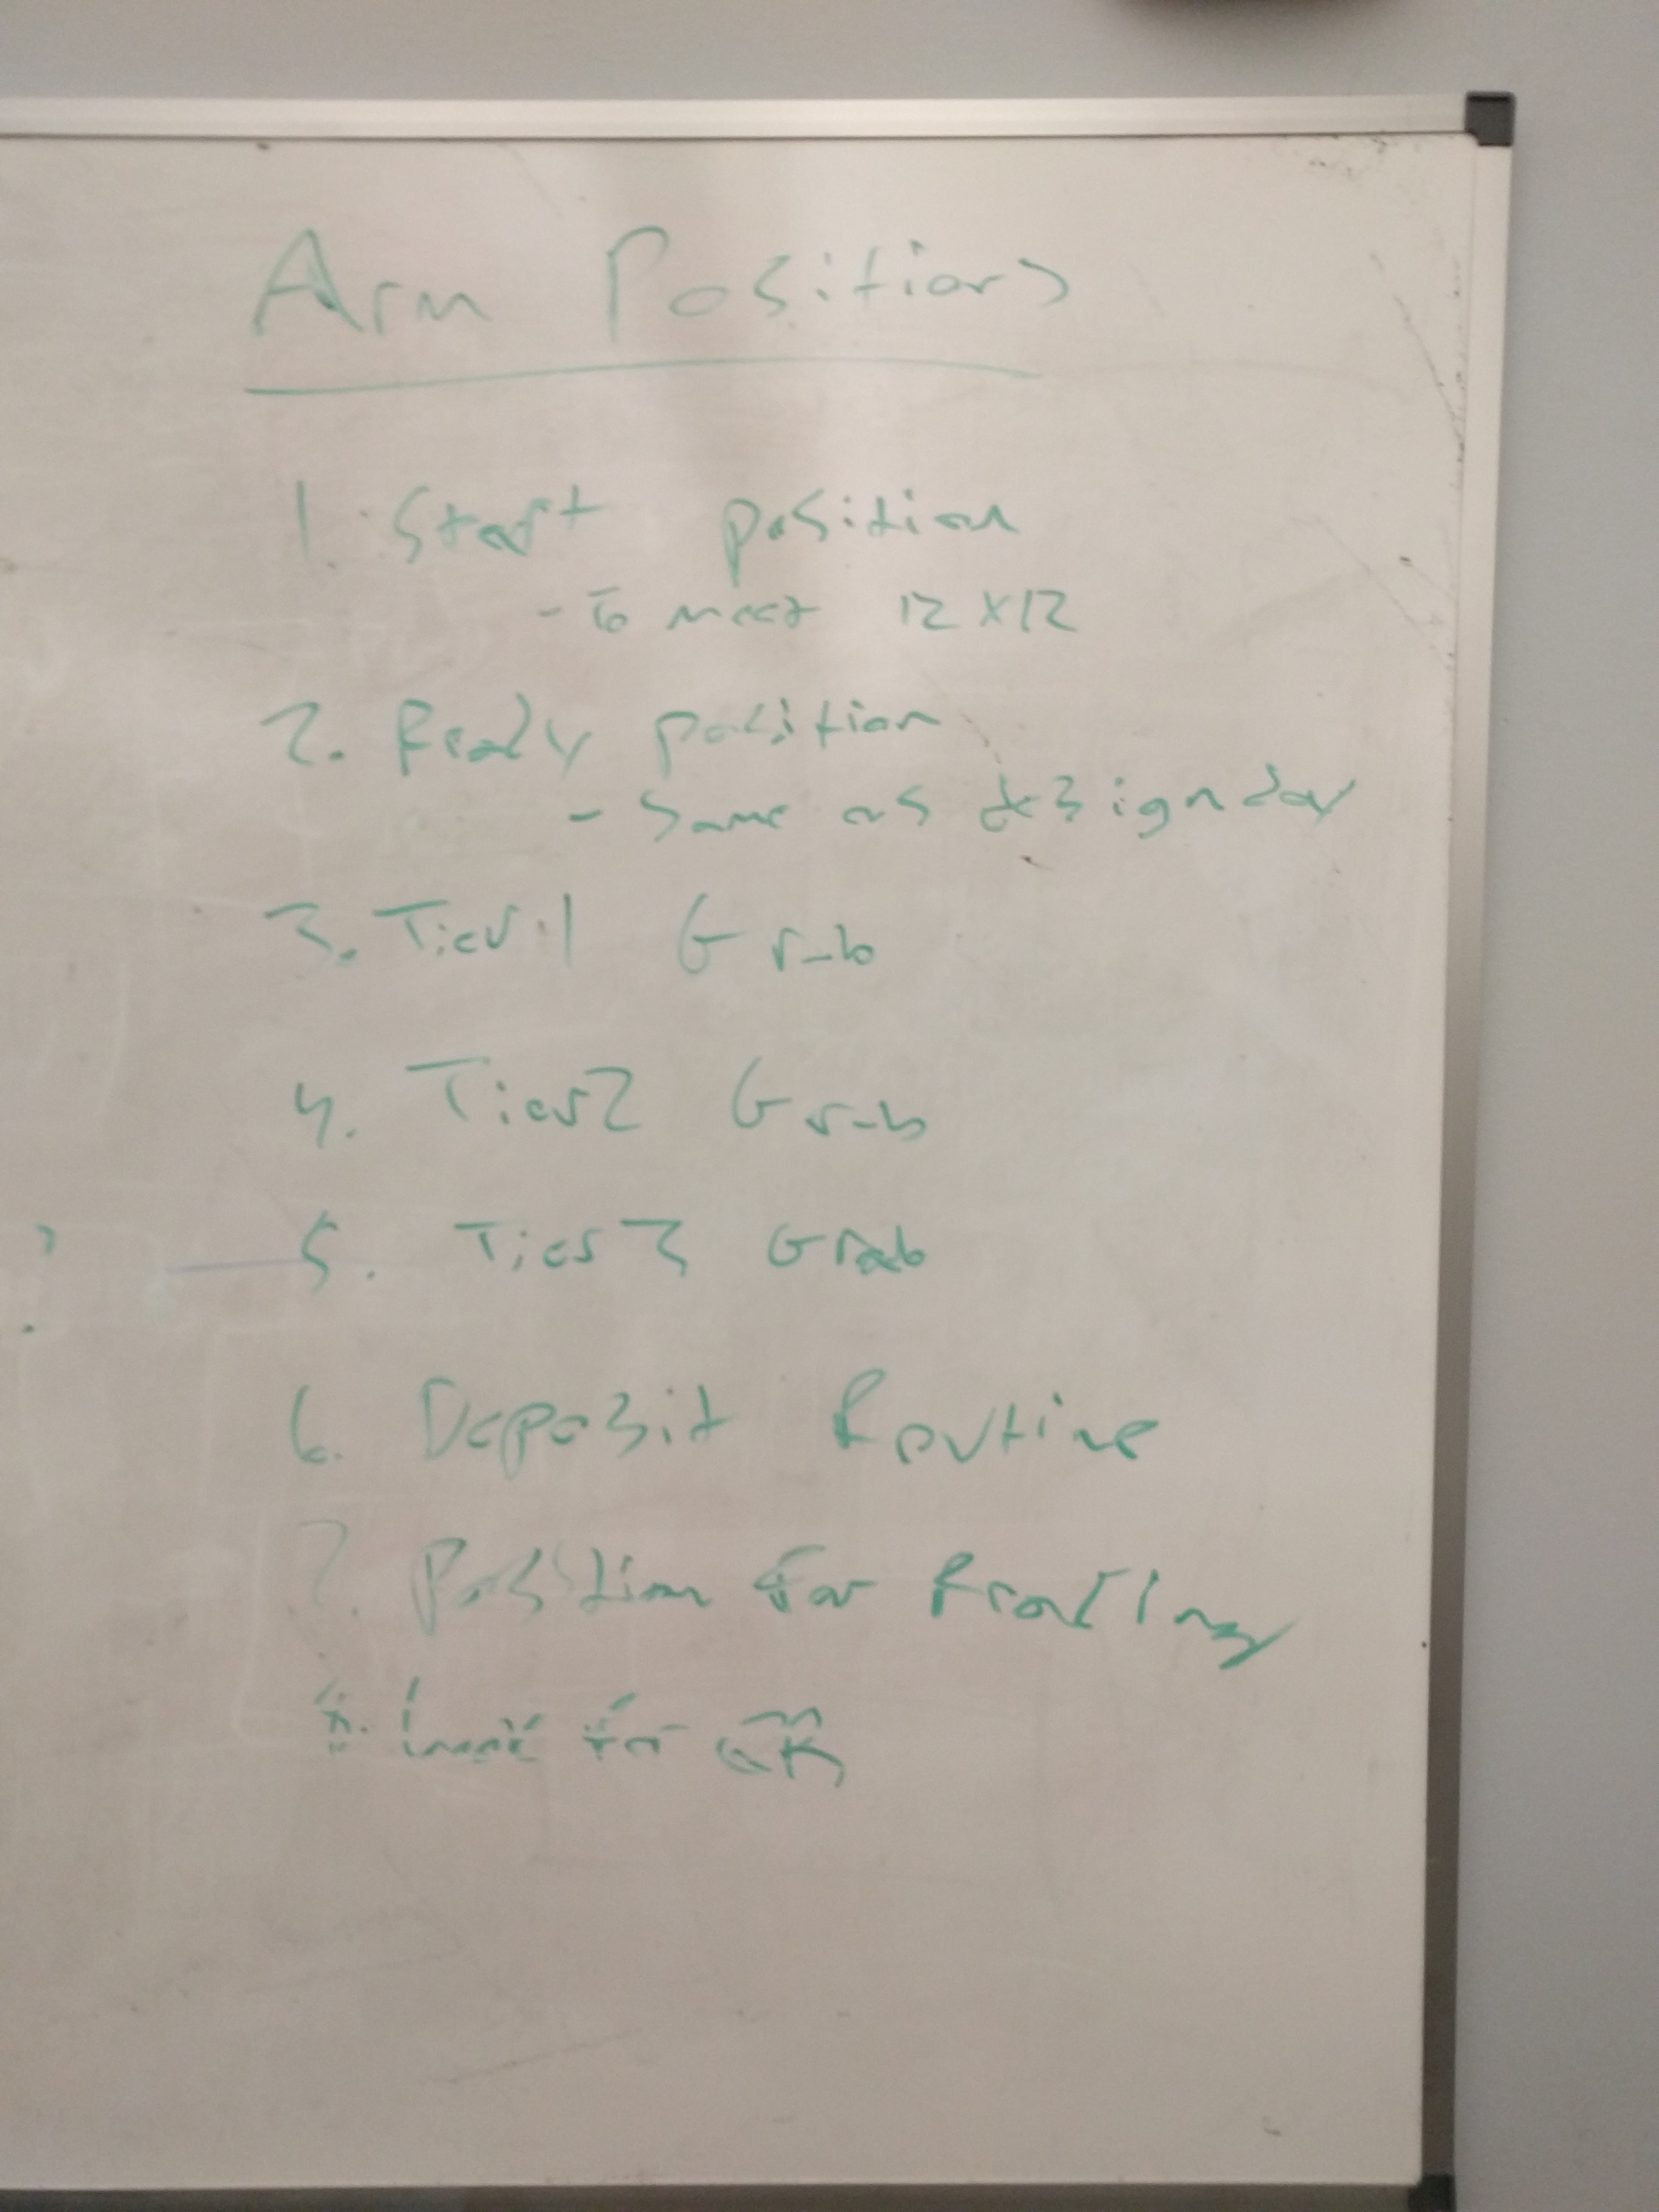 Arm Positions
1. Start position
- to meet 12 X 12
2. Ready position
- Same as design day
3. Tier 1 Grab
4. Tier 2 Grab
5. Tier 3 Grab
6. Deposit Routine
7. Position for Reading
for QR